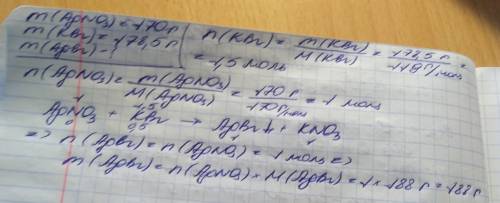 m(AgNO₃)=170г
m(KBr)=178,5г
m(AgBr)-?
n(KBr)= m(KBr)/M(KBr) = 178,5г/119г/моль =
=1,5 моль
n(AgNO₃)= m(AgNO₃)/M(AgNO₃) = 170г/170г/моль = 1 моль
1 1,5
AgNO₃ + KBr → AgBr↓ + KNO₃
0 0,5 1 1
=> n(AgBr)= n(AgNO₃)= 1 моль =>
m(AgBr)= n(AgNO₃)×M(AgBr)=1×188г=188г